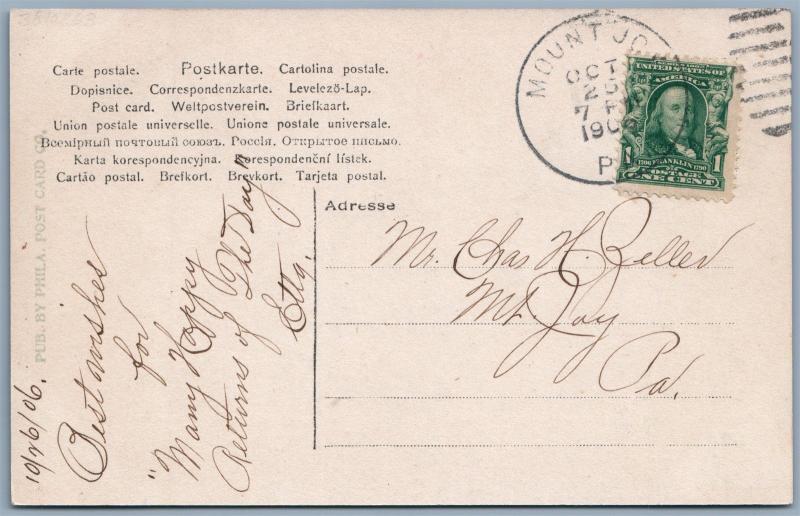 Carte postale. Postkarte. Cartolina postale.
Dopisnice. Correspondenzkarte. Levelező-Lap.
Post card. Weltpostverein. Briefkaart.
Union postale universelle. Unione postale universale.
Всемірный почтовый союзъ. Россія. Открытое письмо.
Karta korespondencyjna. Korespondenční lístek.
Cartão postal. Brefkort. Brevkort. Tarjeta postal.
MOUNT JO
OCT
7 P
190
P
UNITED STATES OF
AMERICA
1706 FRANKLIN 1790
1 1
POSTAGE
ONE CENT
Adresse
Mr. Chas H. Zeller
Mt. Joy
Pa.
PUB. BY PHILA. POST CARD CO.
10/26/06.
Best wishes
for
"Many Happy
Returns of The Day"
Etta.